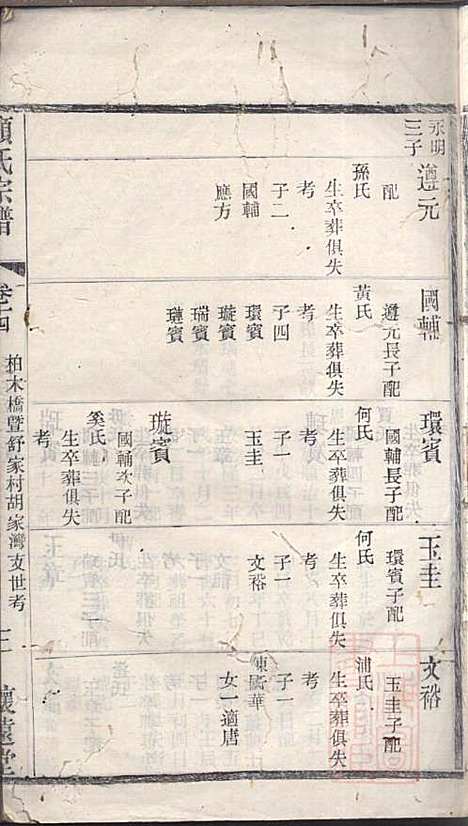 永明
三子
遵元
配
孫氏
生卒葬俱失
考
子二
國輔
應方
國輔
遵元長子配
黃氏
生卒葬俱失
考
子四
環賓
璇賓
瑞賓
璉賓
環賓
國輔長子配
何氏
生卒葬俱失
考
子一
玉圭
璇賓
國輔次子配
奚氏
生卒葬俱失
考
玉圭
環賓子配
何氏
生卒葬俱失
考
子一
文裕
文裕
玉圭子配
浦氏
生卒葬俱失
考
子一
女一適唐
氏宗譜
卷十四
柏木橋暨舒家村胡家灣支世考
懷遠堂